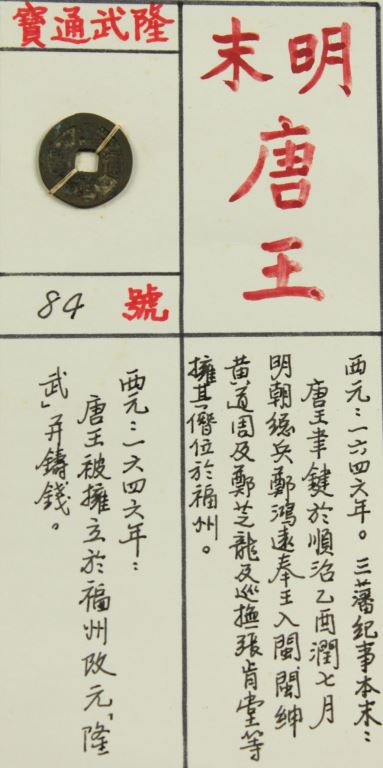 明末
唐王
西元：一六四六年。三藩紀事本末：
唐王聿鍵於順治乙酉潤七月
明朝總兵鄭鴻逵奉王入閩閩紳
黃道周及鄭芝龍及巡撫張肯堂等
擁其僭位於福州。
隆武通寶
84 號
西元：一六四六年：
唐王被擁立於福州改元「隆
武」并鑄錢。